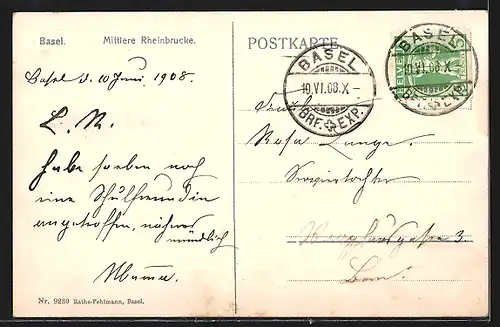 Basel. Mittlere Rheinbrucke.
POSTKARTE
BASEL
10.VI.08.X-
BRF. EXP.
BASEL
10.VI.08.X
BRF. EXP.
HELVE
Basel d. 10 Juni 1908.
L. R.
habe soeben noch
eine Schulfreundin
angetroffen, näheres
mündlich
Mamma.
Fräulein
Rosa Lange.
Serviertochter
3.
Bern.
Nr. 9230 Rathe-Fehlmann, Basel.